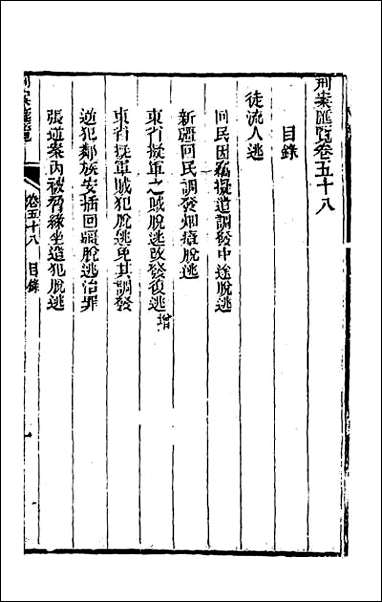 刑案匯覽卷五十八
目錄
徒流人逃
回民因竊擬遣調發中途脫逃
新疆回民調發煙瘴脫逃
東省擬軍之賊脫逃改發復逃增
東省擬軍賊犯脫逃免其調發
逆犯鄰族安插回疆脫逃治罪
張逆案內被脅緣坐遣犯脫逃
刑案匯覽
卷五十八 目錄
一